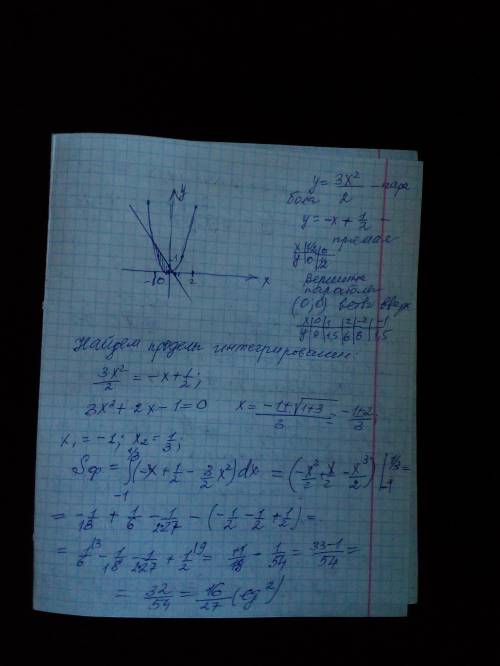 y
x
0
1
2
y = 3x²/2 - пара
бола
y = -x + 1/2 -
прямая
x | 1/2 | 0
y | 0 | 1/2
Вершина
параболы
(0; 0) ветви вверх
x | 0 | 1 | 2 | -2 | -1
y | 0 | 1,5 | 6 | 6 | 1,5
Найдем пределы интегрирования:
3x²/2 = -x + 1/2;
3x² + 2x - 1 = 0 x = (-1 ± √(1+3))/3 = (-1 ± 2)/3;
x₁ = -1; x₂ = 1/3;
Sф = ∫₋₁^(1/3) (-x + 1/2 - 3/2 x²) dx = (-x²/2 + x/2 - x³/2) |₋₁^(1/3) =
= -1/18 + 1/6 - 1/2·27 - (-1/2 - 1/2 + 1/2) =
= 1/6 - 1/18 - 1/2·27 + 1/2 = 11/18 - 1/54 = (33-1)/54 =
= 32/54 = 16/27 (ед²)